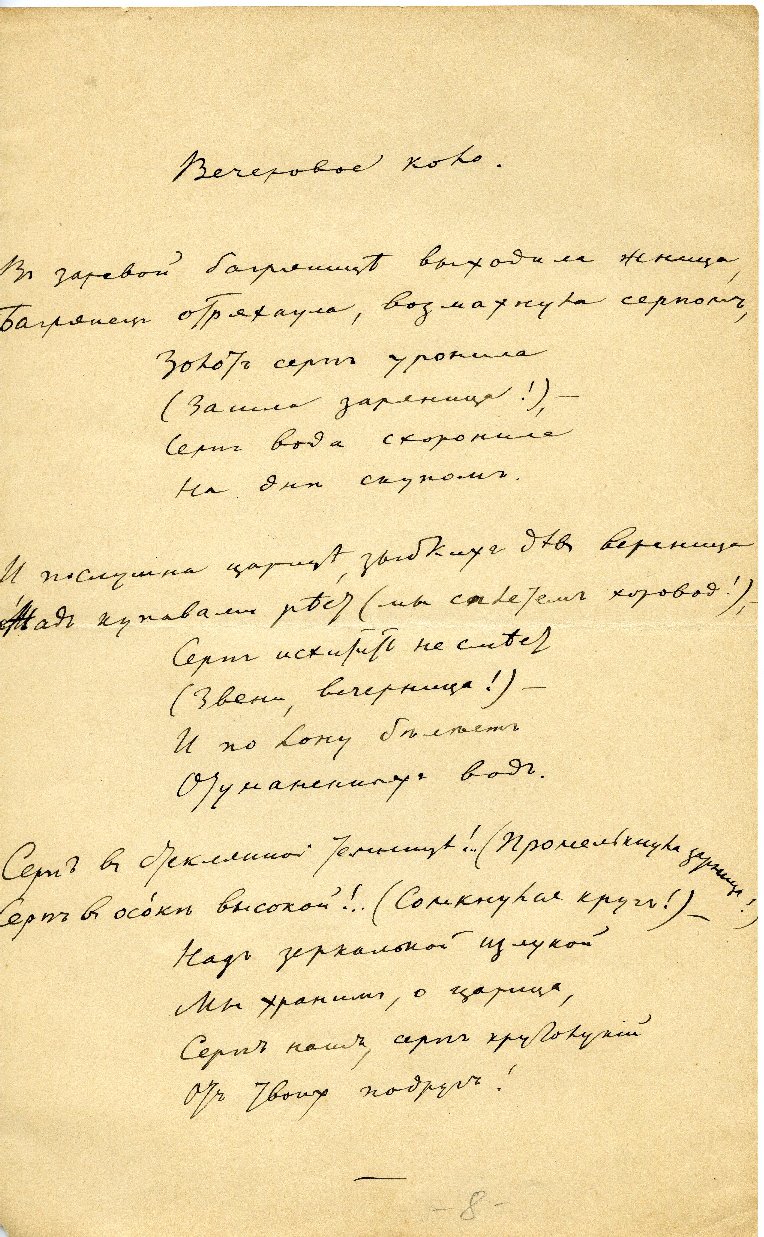 Вечеровое коло.
Въ заревой багряницѣ выходила жница,
Багрянецъ отряхнула, возмахнула серпомъ,
Золотъ серпъ уронила
(Зашла заряница!), —
Серпъ вода схоронила
На дне скупомъ.
И послушна царицѣ, зыбкихъ дѣвъ вереница
Надъ купавами рѣетъ (мы сплетемъ хоровод!), —
Серпъ исхитить не смѣетъ
(Звени, вечерница!) —
И по лону блѣетъ
Отуманенныхъ водъ.
Серпъ въ стеклянной темницѣ!.. (Промелькнула зарница!)
Серпъ въ осо́кѣ высокой!.. (Сомкнулся кругъ!) —
Надъ зеркальной излукой
Мы хранимъ, о царица,
Серпъ нашъ, серпъ круголукій
Отъ твоих подругъ!
- 8 -